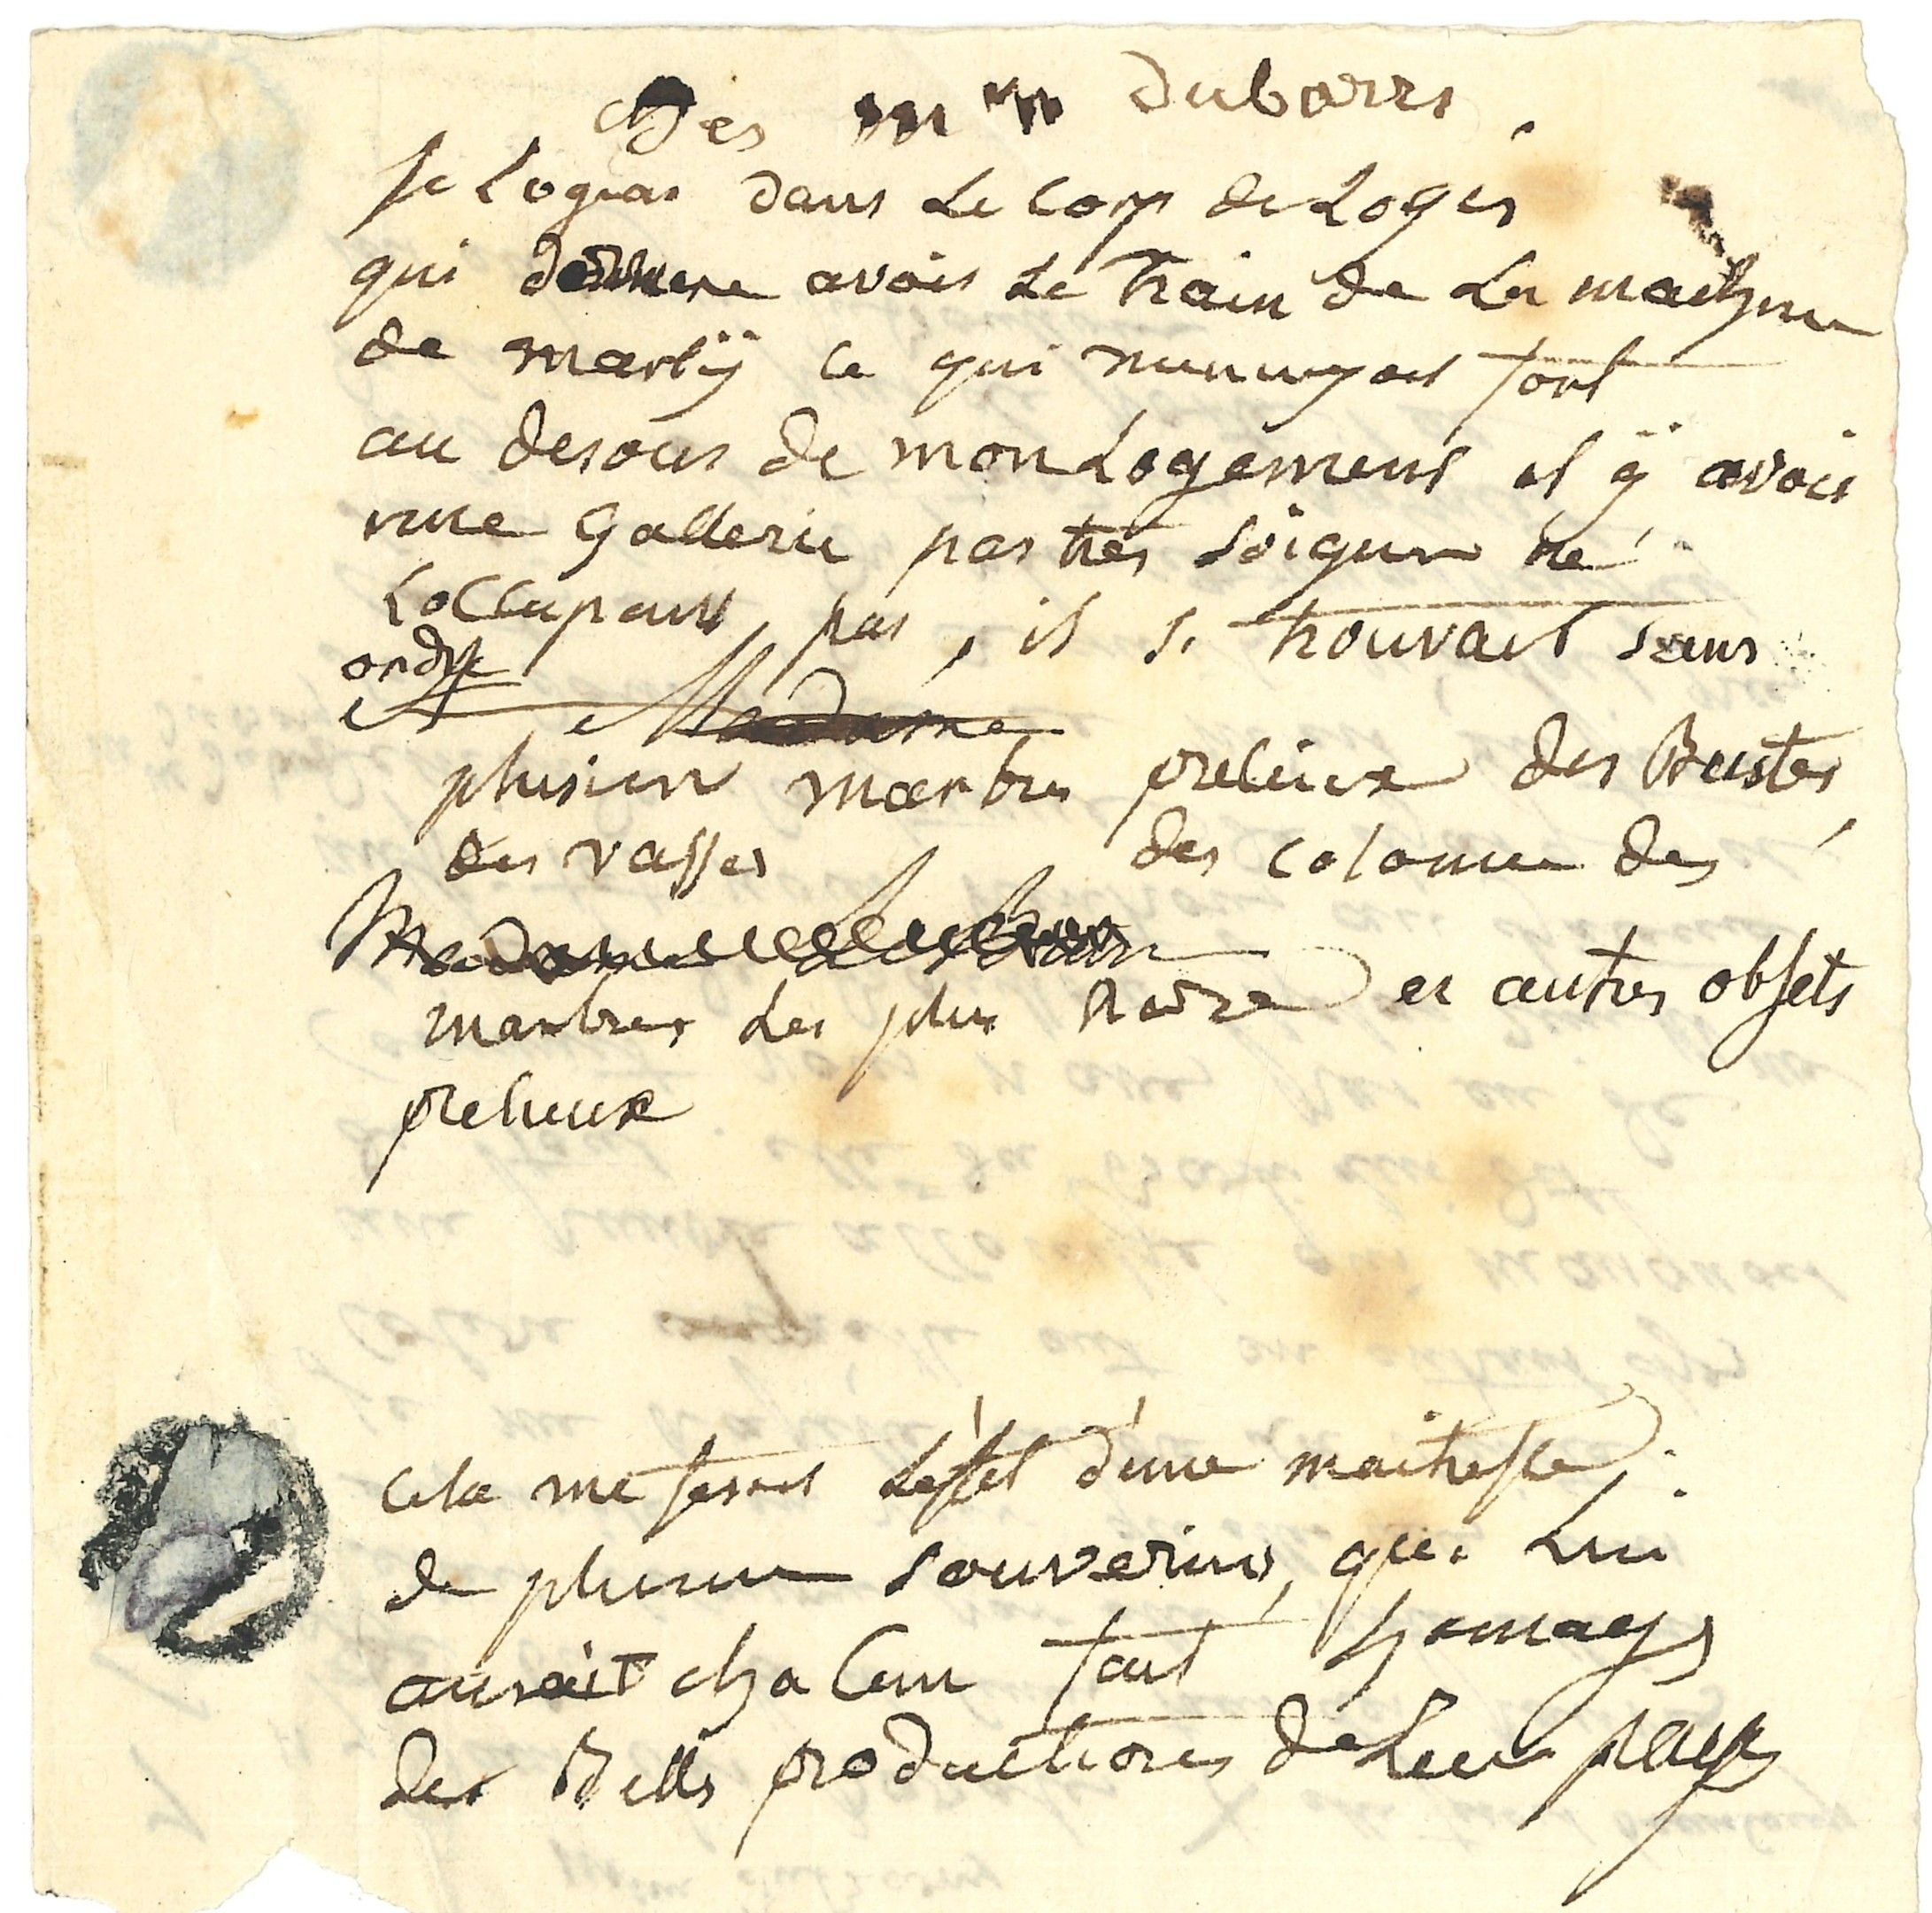 ches mme dubarri.
je logeai dans le corp de Logis
qui avois le train de la machine
de marlÿ ce qui mennuyoit fort
au desous de mon Logement il ÿ avois
une Gallerie pas tres soignee ne
Loccupant pas, il se trouvait sans
ordre
et Madame
plusieur marbre precieux des Bustes
des vasses des colonne des
Madame
marbres les plus rare et autres objets
precieux
cela me fesoit Leffet d'une maitresse
de plusieur souverins, qui lui
auroit chacun fait homages
des Belles productions de Leur pays